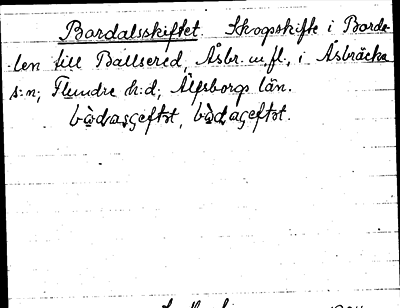 Bordalsskiftet. Skogsskifte i Borda-
len till Ballsered, Åsbr. m.fl., i Åsbräcka
s:n, Flundre h:d, Älfsborgs län.
bòdasgeftət, bòdageftət.